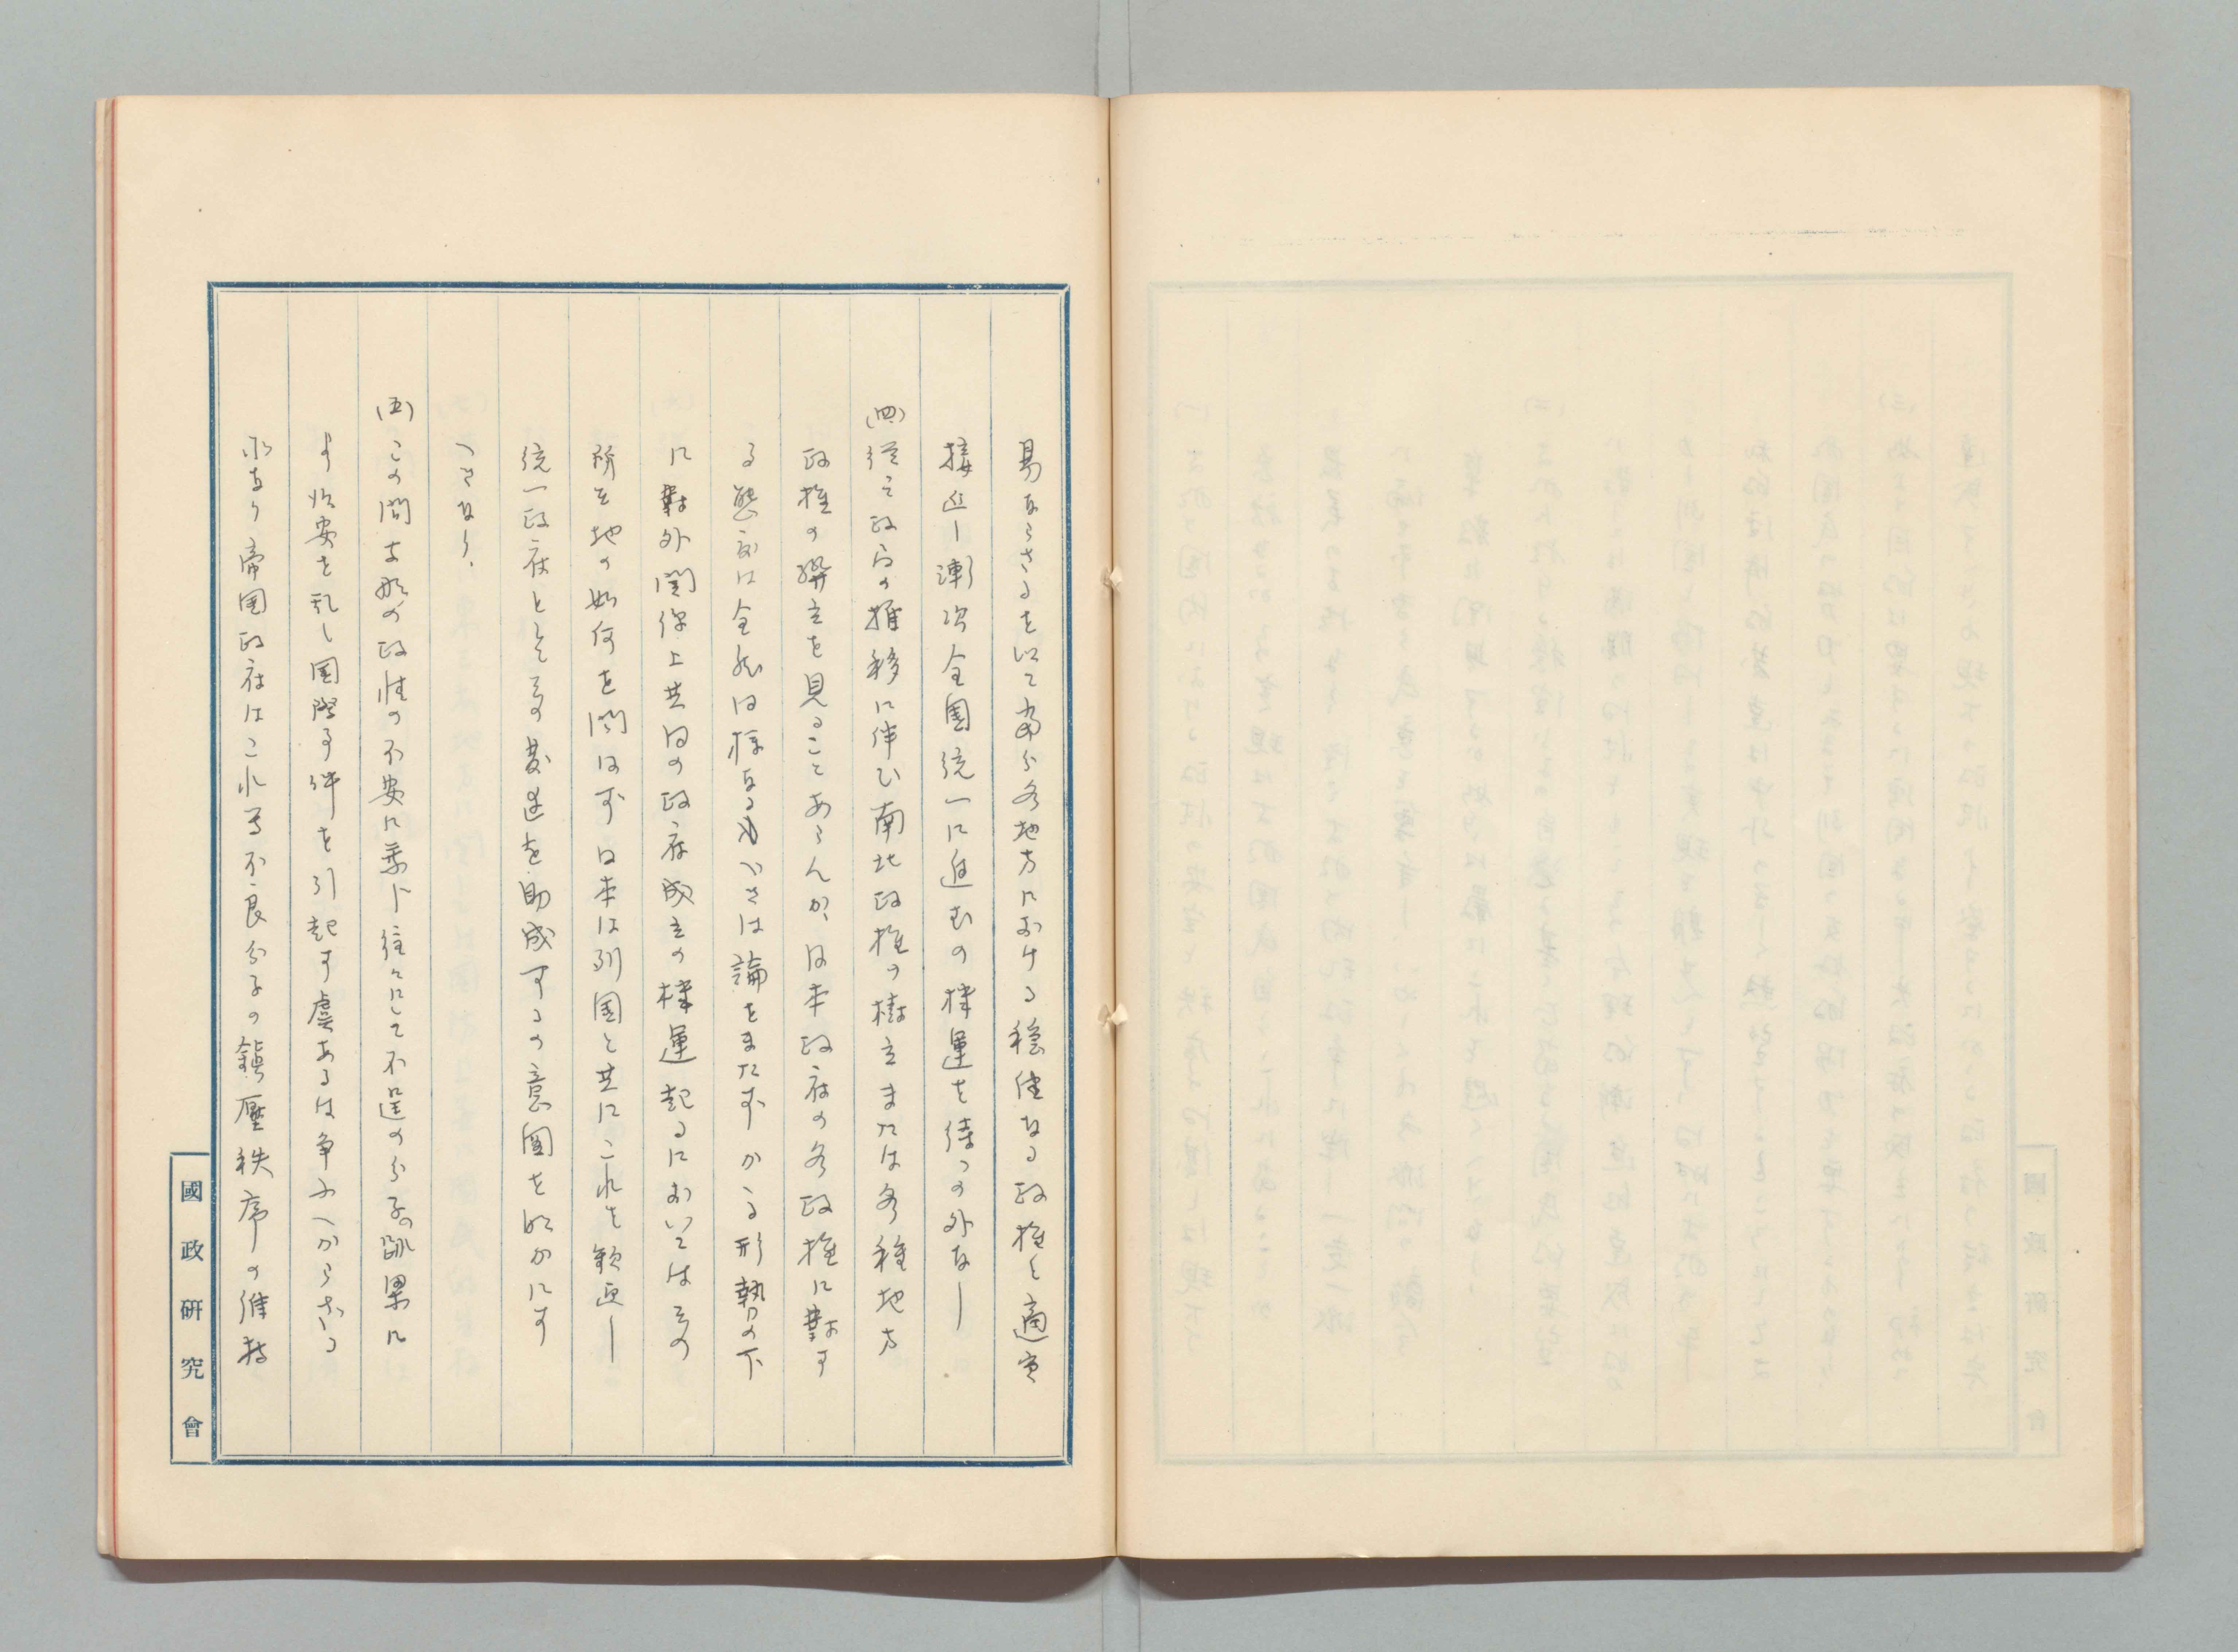 易ならさるを以て當分各地方における穏健なる政権と適宜
接近し漸次全国統一に進むの機運を待つの外なし
(四)従て政局の推移に伴ひ南北政権の樹立または各種地方
政権の聯立を見ることあらんか、日本政府の各政権に對す
る態度は全然同様なるへきは論をまたすかゝる形勢の下
に對外関係上共同の政府成立の機運起るにおいてはその
所在地の如何を問はす日本は列国と共にこれを歓迎し
統一政府としてその発達を助成するの意圖を明かにす
へきなり、
(五)この間支那の政情の不安に乗し往々にして不逞の分子の跳梁に
より治安を乱し国際事件を引起す虞あるは争ふへからさる
所なり帝国政府はこれ等不良分子の鎮壓秩序の維持
國政研究會